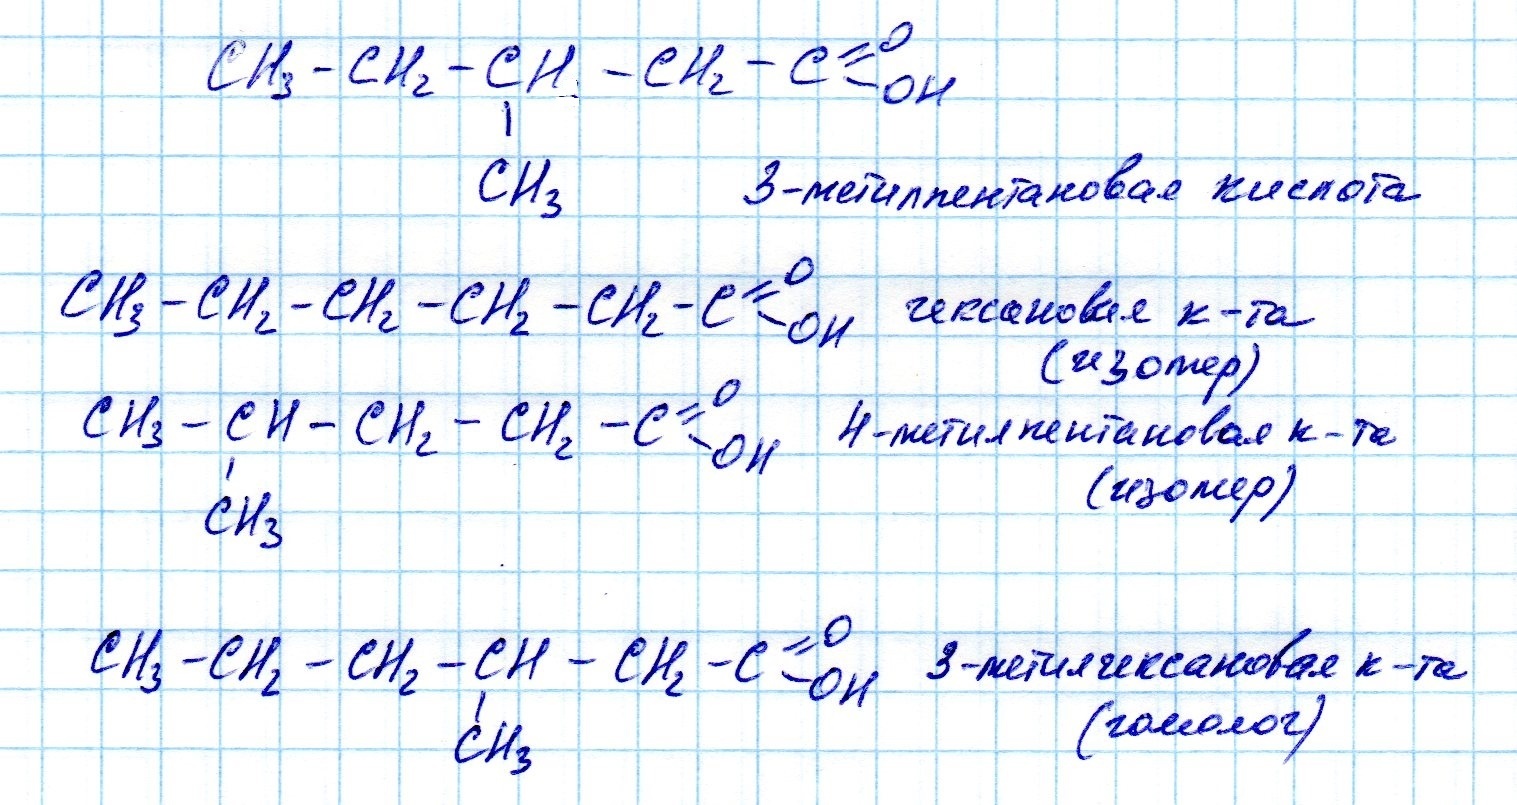 CH₃ – CH₂ – CH – CH₂ – C = O
– OH
|
CH₃
3-метилпентановая кислота
CH₃ – CH₂ – CH₂ – CH₂ – CH₂ – C = O
– OH
гексановая к-та
(изомер)
CH₃ – CH – CH₂ – CH₂ – C = O
– OH
4-метилпентановая к-та
|
CH₃
(изомер)
CH₃ – CH₂ – CH₂ – CH – CH₂ – C = O
– OH
3-метилгексановая к-та
|
CH₃
(гомолог)